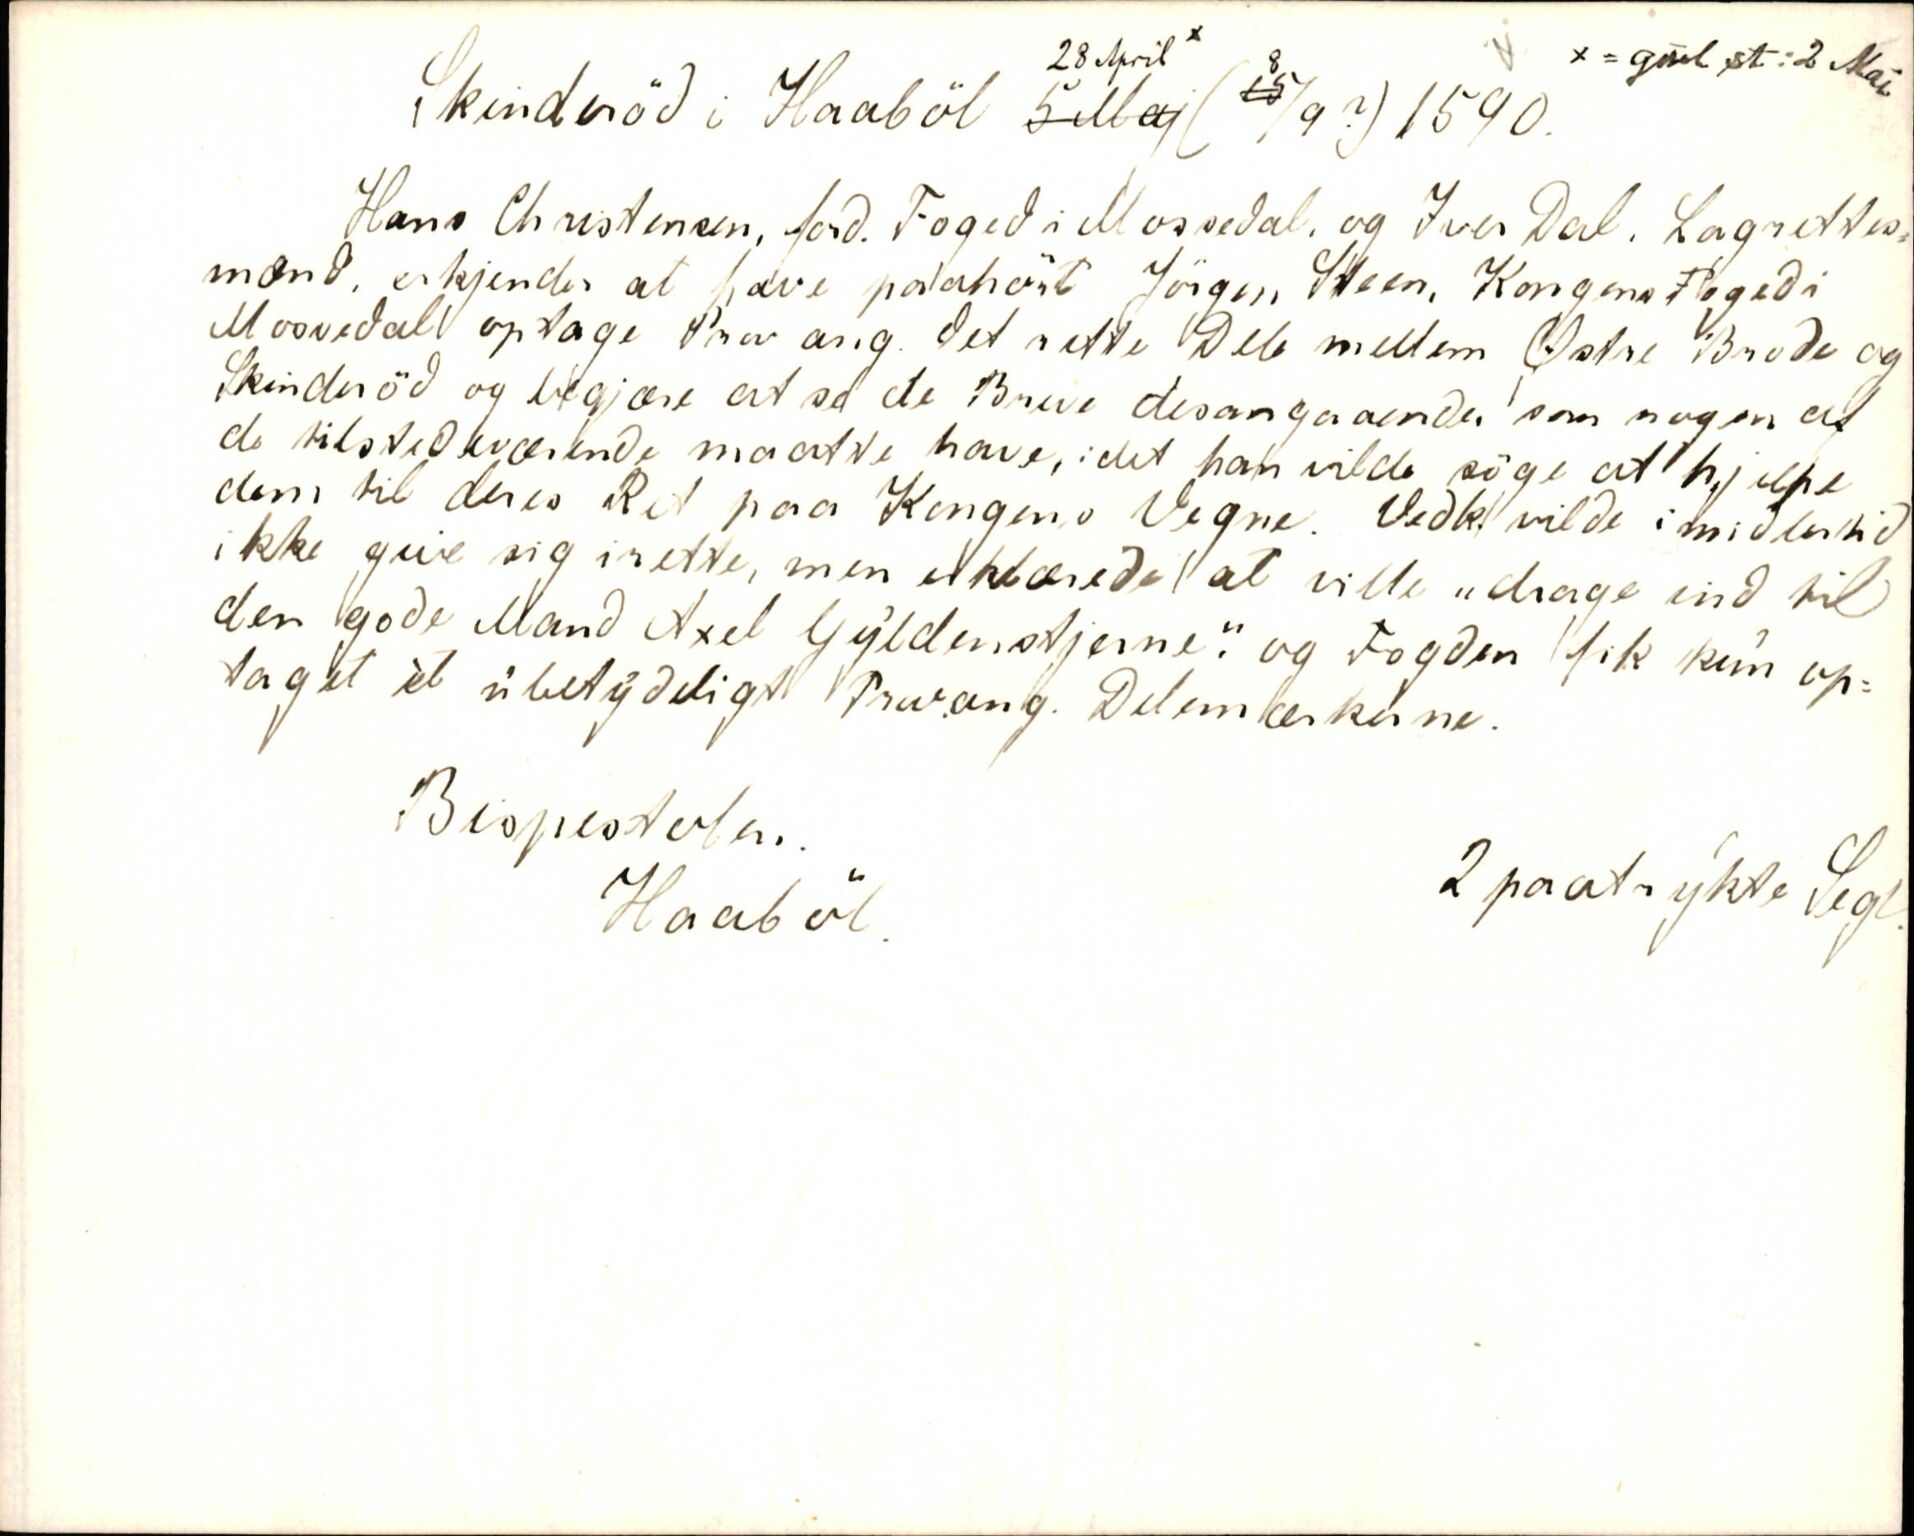 28 April x
x = gml st: 2 Mai
Skinderöd i Haaböl 5 Maj (15/9 ?) 1590.
8
Hans Christensen, ford. Foged i Mossedal, og Iver Dal, Lagrettes=
mænd, erkjender at have paahört Jörgen Steen, Kongens Foged i
Mosvedal optage Prov ang. det rette Dele mellem Østre Brode og
Skinderöd og begjære at se de Breve desangaaende som nogen af
de tilstedeværende maatte have, idet han vilde söge at hjelpe
dem til deres Ret paa Kongens Vegne. Vedk. vilde imidlertid
ikke give sig irette, men erklærede at ville „drage ind til
den gode Mand Axel Gyldenstjerne“ og Fogden fik kun op=
taget et ubetydeligt Prov ang. Delemærkerne.
Bispestolen.
Haaböl.
2 paatrykte Segl.